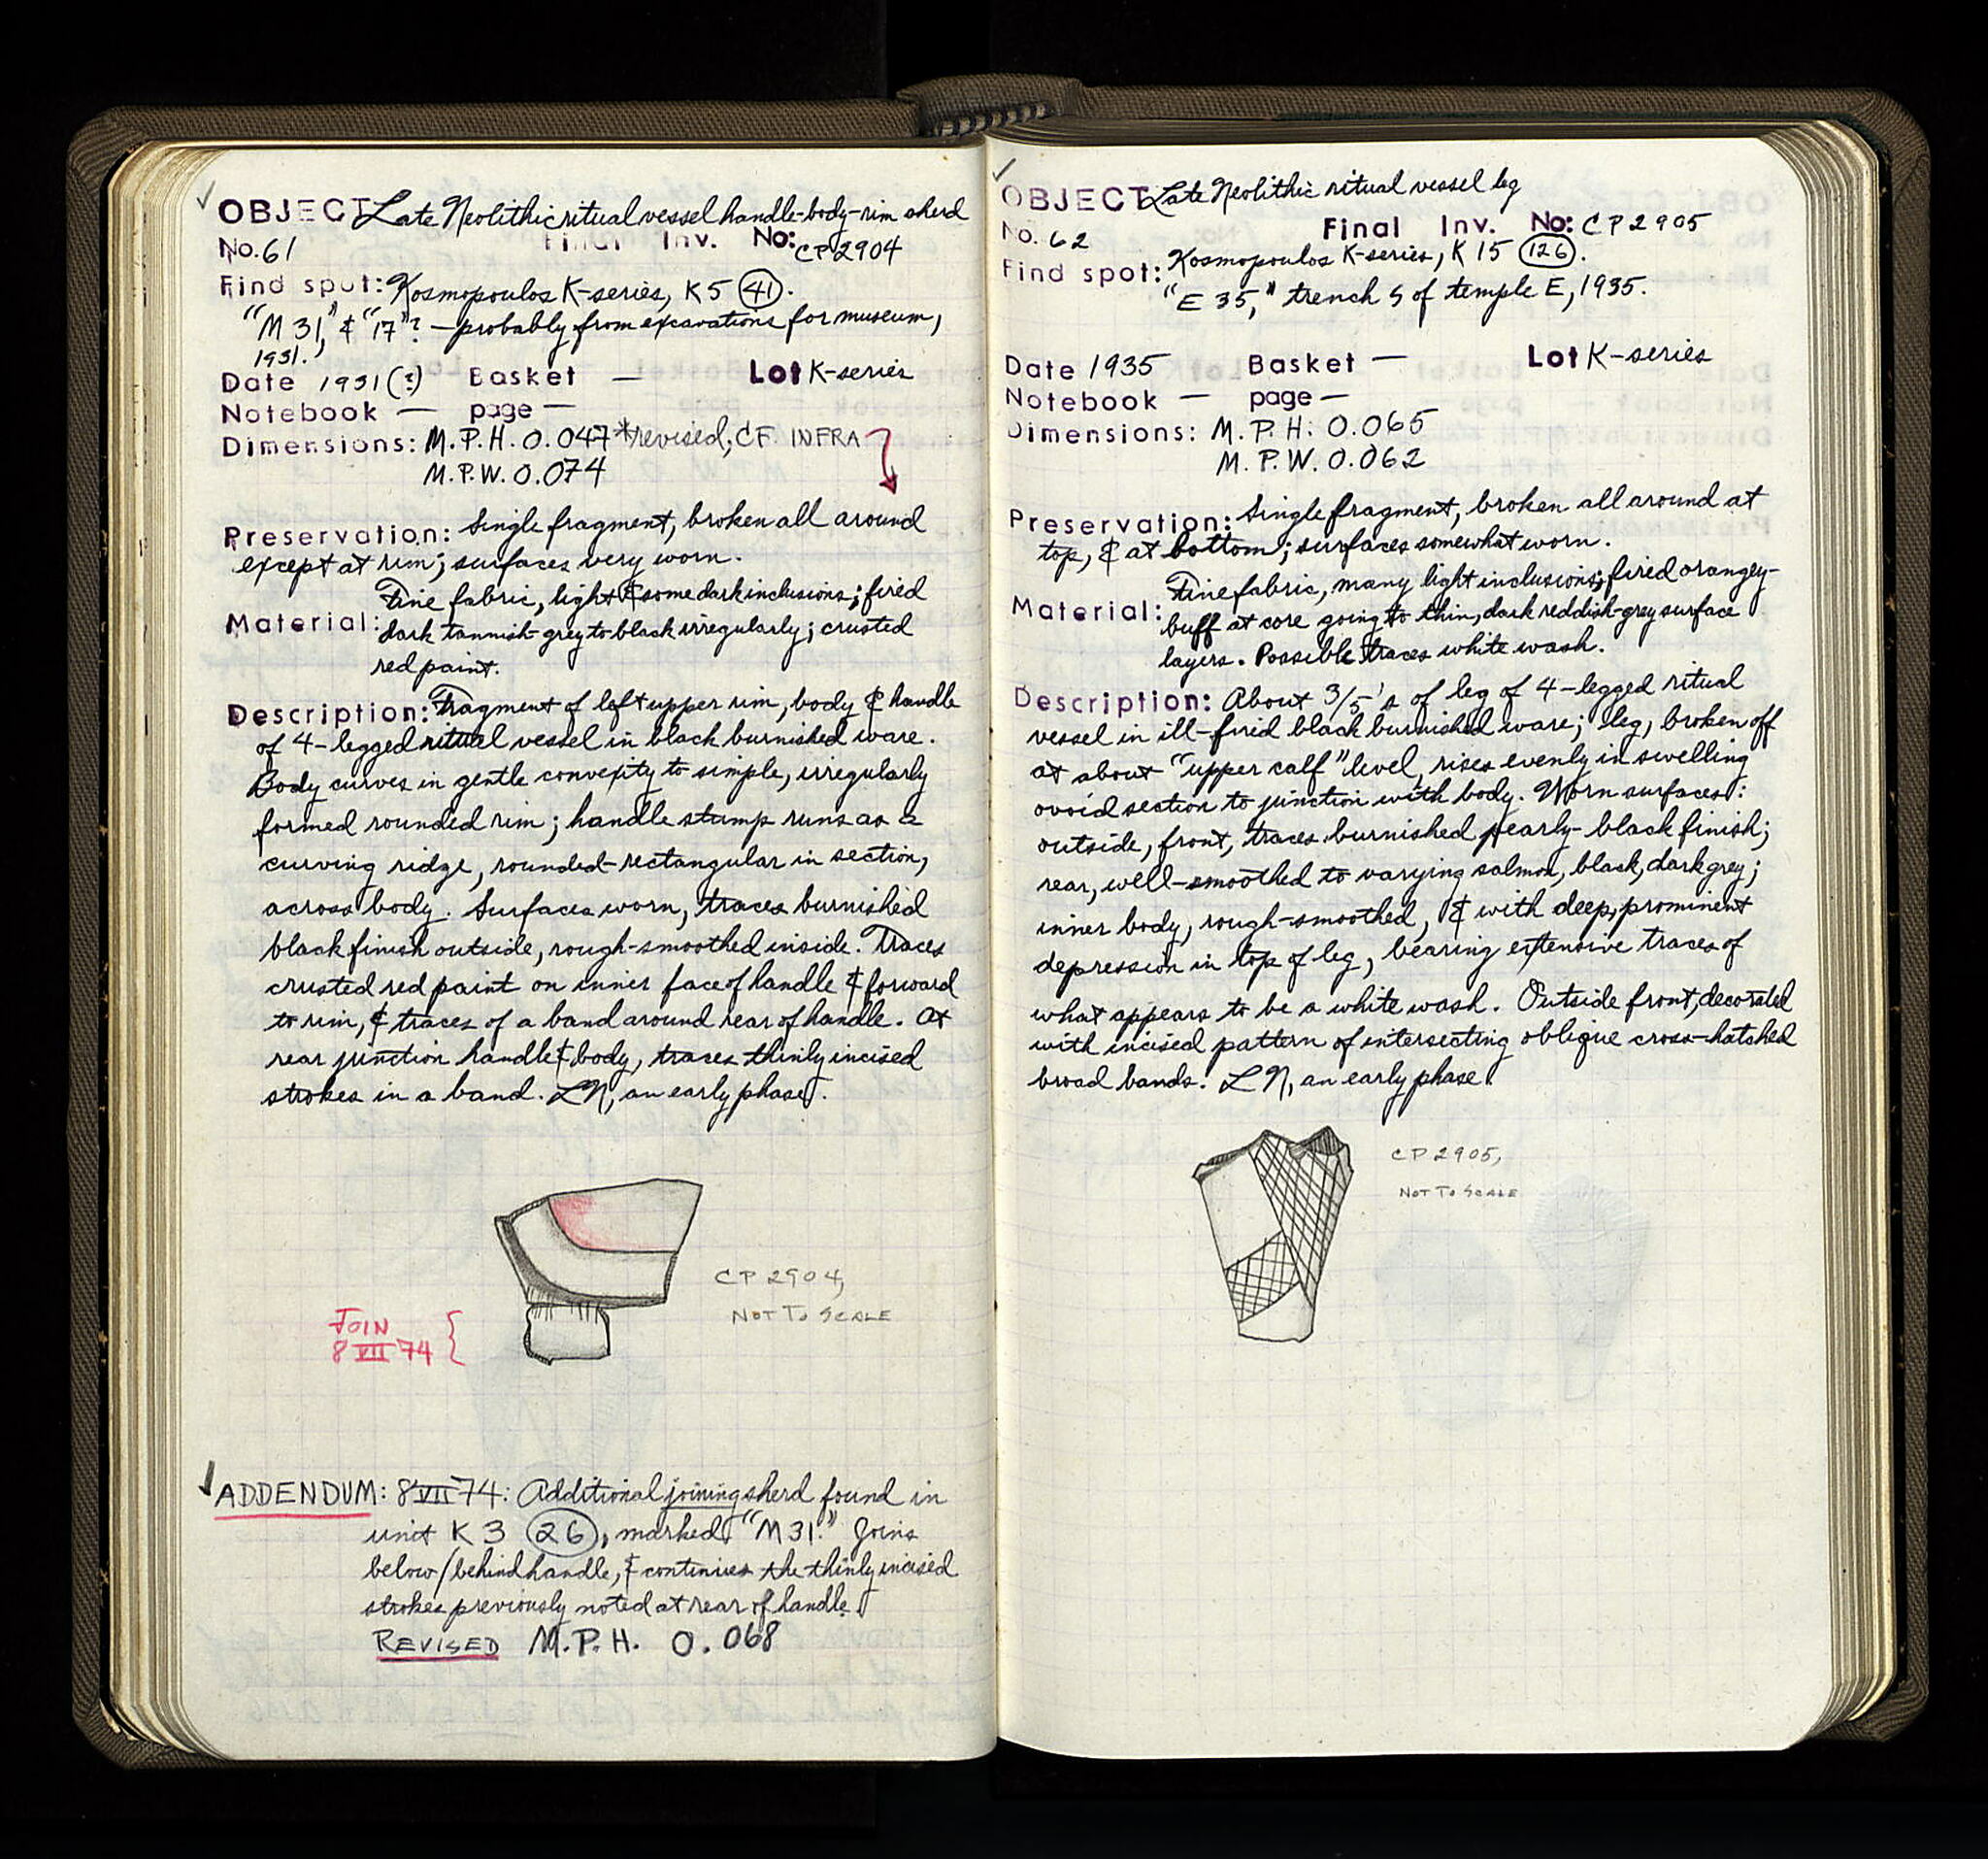 ✓ OBJECT Late Neolithic ritual vessel handle-body-rim sherd
No. 61 Final Inv. No: CP 2904
Find spot: Kosmopoulos K-series, K 5 (41).
"M 31," & "17"? – probably from excavations for museum,
1931.
Date 1931(?) Basket — Lot K-series
Notebook — page —
Dimensions: M.P.H. 0.047 *revised; CF. INFRA
M.P.W. 0.074
Preservation: Single fragment, broken all around
except at rim; surfaces very worn.
Fine fabric, light & some dark inclusions; fired
Material: dark tannish-grey to black irregularly; crusted
red paint.
Description: Fragment of left upper rim, body & handle
of 4-legged ritual vessel in black burnished ware.
Body curves in gentle convexity to simple, irregularly
formed rounded rim; handle stump runs as a
curving ridge, rounded-rectangular in section,
across body. Surfaces worn, traces burnished
black finish outside, rough-smoothed inside. Traces
crusted red paint on inner face of handle & forward
to rim, & traces of a band around rear of handle. At
rear junction handle & body, traces thinly incised
strokes in a band. LN, an early phase.
CP 2904,
NOT TO SCALE
JOIN
8 VII 74 {
✓ ADDENDUM: 8 VII 74: Additional joining sherd found in
unit K 3 (26), marked "M 31." Joins
below/behind handle, & continues the thinly incised
strokes previously noted at rear of handle.
REVISED M.P.H. 0.068
✓ OBJECT Late Neolithic ritual vessel leg
No. 62 Final Inv. No: CP 2905
Find spot: Kosmopoulos K-series, K 15 (126).
"E 35," trench S of temple E, 1935.
Date 1935 Basket — Lot K-series
Notebook — page —
Dimensions: M.P.H. 0.065
M.P.W. 0.062
Preservation: Single fragment, broken all around at
top, & at bottom; surfaces somewhat worn.
Fine fabric, many light inclusions; fired orangey-
Material: buff at core going to thin, dark reddish-grey surface
layers. Possible traces white wash.
Description: About 3/5's of leg of 4-legged ritual
vessel in ill-fired black burnished ware; leg, broken off
at about "upper calf" level, rises evenly in swelling
ovoid section to junction with body. Worn surfaces:
outside, front, traces burnished pearly-black finish;
rear, well-smoothed to varying salmon, black, dark grey;
inner body, rough-smoothed, & with deep, prominent
depression in top of leg, bearing extensive traces of
what appears to be a white wash. Outside front, decorated
with incised pattern of intersecting oblique cross-hatched
broad bands. LN, an early phase.
CP 2905,
NOT TO SCALE